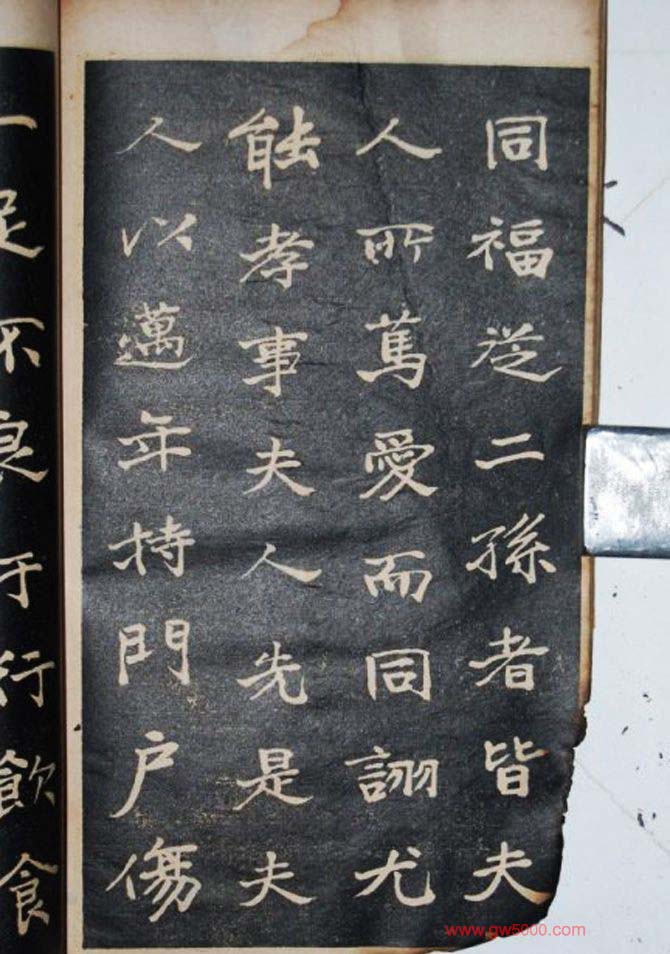 同福从二孫者皆夫
人所篤愛而同詡尤
能孝事夫人先是夫
人以邁年持門户傷
一足不良于行飲食
www.gw5000.com